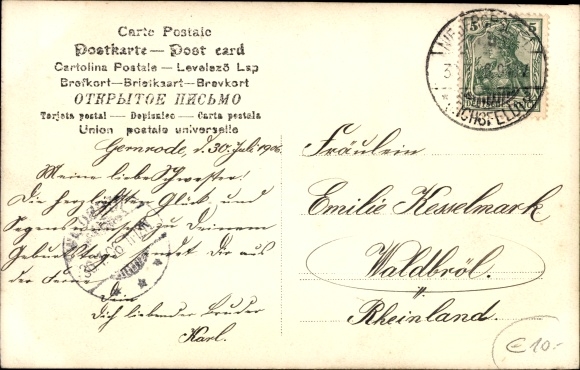 Carte Postale
Postkarte — Post card
Cartolina Postale — Levelező Lap
Brefkort — Briefkaart — Brevkort
ОТКРЫТОЕ ПИСЬМО
Tarjeta postal — Dopisnica — Carta postala
Union postale universelle
Gernrode, d. 30. Juli 1906.
Meine liebe Schwester!
Die herzlichsten Glück und
Segens zu Deinem
Geburtstag sendet Dir aus
der Ferne
Dein
Dich liebender Bruder
Karl.
5
EICHSFELD
Fräulein
Emilie Kesselmark
Waldbröl.
Rheinland.
€10.-